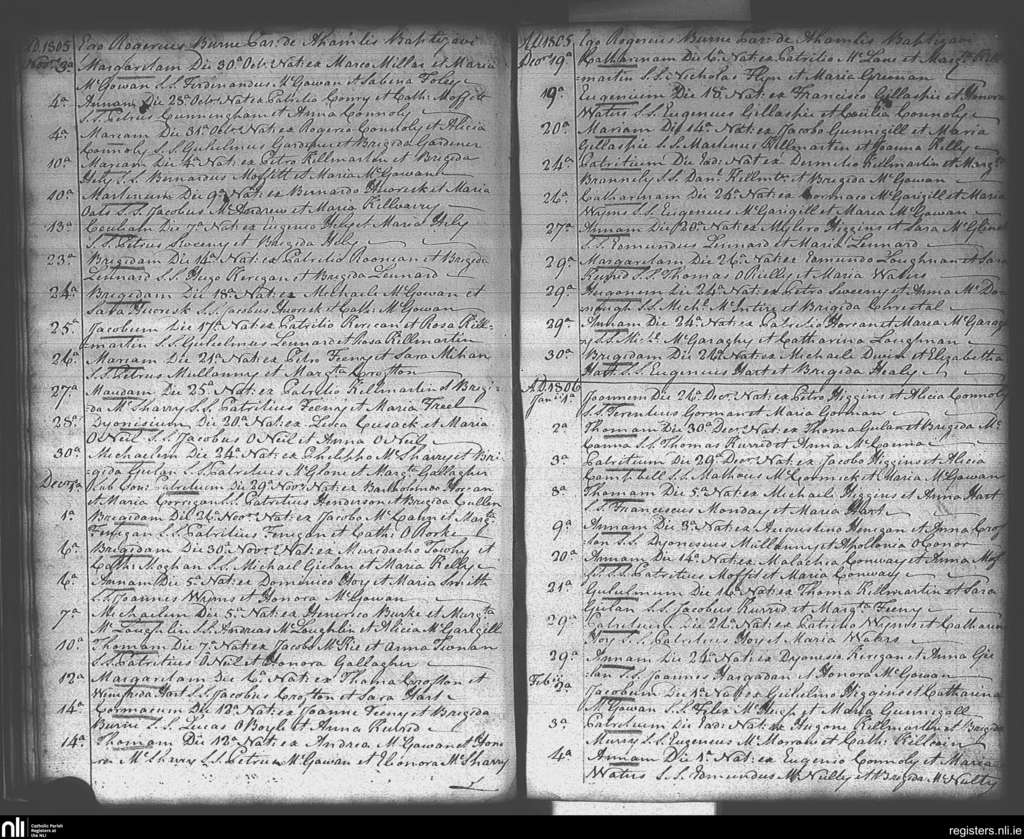 A.D. 1805 Ego Rogerius Burne Par: de Ahamlis Baptizavi
Novr. 3a Margaretam Die 30a Octr Nat: ex Marco Millar et Maria
McGowan S.S. Ferdenandus McGowan et Sabena Foley
4a Annam Die 28a Octr Nat: ex Patritio Conry et Cath: Moffitt
S.S. Petrus Cunningham et Anna Connoly
4a Mariam Die 31a Octr Nat: ex Rogerio Connoly et Alicia
Connoly S.S. Gulielmus Gardener et Brigida Gardener
10a Mariam Die 4a Nat: ex Petro Killmartin et Brigida
Hely S.S. Bernardus Moffitt et Maria McGowan
10a Martinum Die 9a Nat: ex Bernardo et Maria
Oats S.S. Jacobus McAndrew et Maria
13a Die 7a Nat: ex Eugenio Hely et Maria Hely
S.S. Petrus Sweeny et Brigida Hely
23a Brigidam Die 14a Nat: ex Patritio Roonian et Brigida
Lennard S.S. Hugo Kerigan et Brigida Lennard
24a Brigidam Die 18a Nat: ex Michaele McGowan et
Sara S.S. Jacobus et Cath: McGowan
25a Jacobum Die 17a Nat: ex Patritio Kerican et Rosa Kill-
martin S.S. Gulielmus Lennard et Rosa Killmartin
26a Mariam Die 21a Nat: ex Petro Feeny et Sara Mihan
S.S. Petrus Mullanny et Margta Crofton
27a Die 25a Nat: ex Patritio Killmartin et Brigi-
da McSharry S.S. Patritius Feeny et Maria Freel
28a Dyonisium Die 20a Nat: ex Cusack et Maria
O Neil S.S. Jacobus O Neil et Anna O Neil
30a Michaelem Die 24a Nat: ex Philippo McSharry et Bri-
gida Gilan S.S. Patritius McGlone et Margta Gallagher
Decr 1a Patritium Die 29a Novr Nat: ex Bartholomeo Horean
et Maria Corrigan S.S. Patritius Henderson et Brigida Cullen
1a Brigidam Die 26a Novr Nat: ex Jacobo McCahin et Margta
Finigan S.S. Patritius Finegan et Cath: O Rorke
6a Brigidam Die 30a Novr Nat: ex Muredacho Towhy et
Cath: Moghan S.S. Michael Gielan et Maria Kelly
6a Annam Die 5a Nat: ex Dominico Hoy et Maria Smith
S.S. Joannes Wynns et Honora McGowan
7a Michaelem Die 5a Nat: ex Henerico Burke et Margta
McLoughlin S.S. Andreas McLoughlin et Alicia McGarigill
10a Thomam Die 7a Nat: ex Jacobo McKie et Anna
S.S. Patritius O Neil et Honora Gallagher
12a Margaretam Die 6a Nat: ex Thoma Crofton et
Winifrida Hart S.S. Jacobus Crofton et Sara Hart
14a Cormacum Die 12a Nat: ex Joanne Feeny et Brigida
Burne S.S. Lucas O Boyle et Anna Kurrid
14a Thomam Die 12a Nat: ex Andrea McGowan et Hono-
ra McSharry S.S. Petrus McGowan et Eleonora McSharry
A.D. 1805 Ego Rogerius Burne Par: de Ahamlis Baptizavi
Decr 19a Katharinam Die 6a Nat: ex Patritio McLane et Margta Kill-
martin S.S. Nicholas Flyn et Maria Greenan
19a Eugenium Die 18a Nat: ex Francisco Gillaspie et Honora
Waters S.S. Eugenius Gillaspie et Cecilia Connoly
20a Mariam Die 14a Nat: ex Jacobo Gunnigill et Maria
Gillaspie S.S. Matheus Killmartin et Joanna Kelly
24a Patritium Die Nat: ex Dermitio Killmartin et Margta
Brannely S.S. Danl Killmtn et Brigida McGowan
26a Catharinam Die 25a Nat: ex Cormaco McGarigill et Maria
Wynns S.S. Eugenius McGarigill et Maria McGowan
27a Annam Die 20a Nat: ex Mylero Higgins et Sara McGlone
S.S. Edmundus Lennard et Maria Lennard
29a Margaretam Die 26a Nat: ex Edmundo Loughnan et Sara
Kurrid S.S. Thomas O Rielly et Maria Waters
29a Die 24a Nat: ex Petro Sweeny et Anna McDo-
nough S.S. Michl McIntire et Brigida Christal
29a Annam Die 24a Nat: ex Patritio Horean et Maria McGarag-
y S.S. Michl McGaraghy et Catharina Loughnan
30a Brigidam Die 24a Nat: ex Michaele Devin et Elizabetha
Hart S.S. Eugenius Hart et Brigida Healy
A.D. 1806
Janr 1a Joannem Die 26a Decr Nat: ex Petro Higgins et Alicia Connoly
S.S. Terentius Gorman et Maria Gorman
2a Thomam Die 30a Decr Nat: ex Thoma Gilan et Brigida Mc
Canna S.S. Thomas Kurrid et Anna McCanna
3a Patritium Die 29a Decr Nat: ex Jacobo Higgins et Alicia
Campbell S.S. Matheus McCormick et Maria McGowan
8a Thomam Die 5a Nat: ex Michael Higgins et Anna Hart
S.S. Franciscus Monday et Maria Hart
9a Annam Die 3a Nat: ex Augustino Horigan et Anna Crof-
ton S.S. Dyonesius Mullanny et Apollonia O Conor
20a Annam Die 14a Nat: ex Malachia Conway et Anna Mof-
fit S.S. Patritius Moffit et Maria Conway
21a Gulielmum Die 16a Nat: ex Thoma Killmartin et Sara
Gilan S.S. Jacobus Kurrid et Margta Feeny
29a Patritium Die 26a Nat: ex Patritio Wynns et Catharina
Hoy S.S. Patritius Hoy et Maria Waters
29a Annam Die 24a Nat: ex Dyonesio Kerigan et Anna Gie-
lan S.S. Joannes Hargadan et Honora McGowan
Feb: 2a Jacobum Die 1a Nat: ex Gulielmo Higgins et Catharina
McGowan S.S. Felix McHugh et Maria Gunnigill
3a Patritium Die Nat: ex Hugone Killmartin et Brigida
Murry S.S. Eugenius McMorrow et Cath: Killoran
4a Annam Die 1a Nat: ex Eugenio Connoly et Maria
Waters S.S. Edmundus McNulty et Brigida McNulty
nli
Catholic Parish
Registers at
the NLI
registers.nli.ie